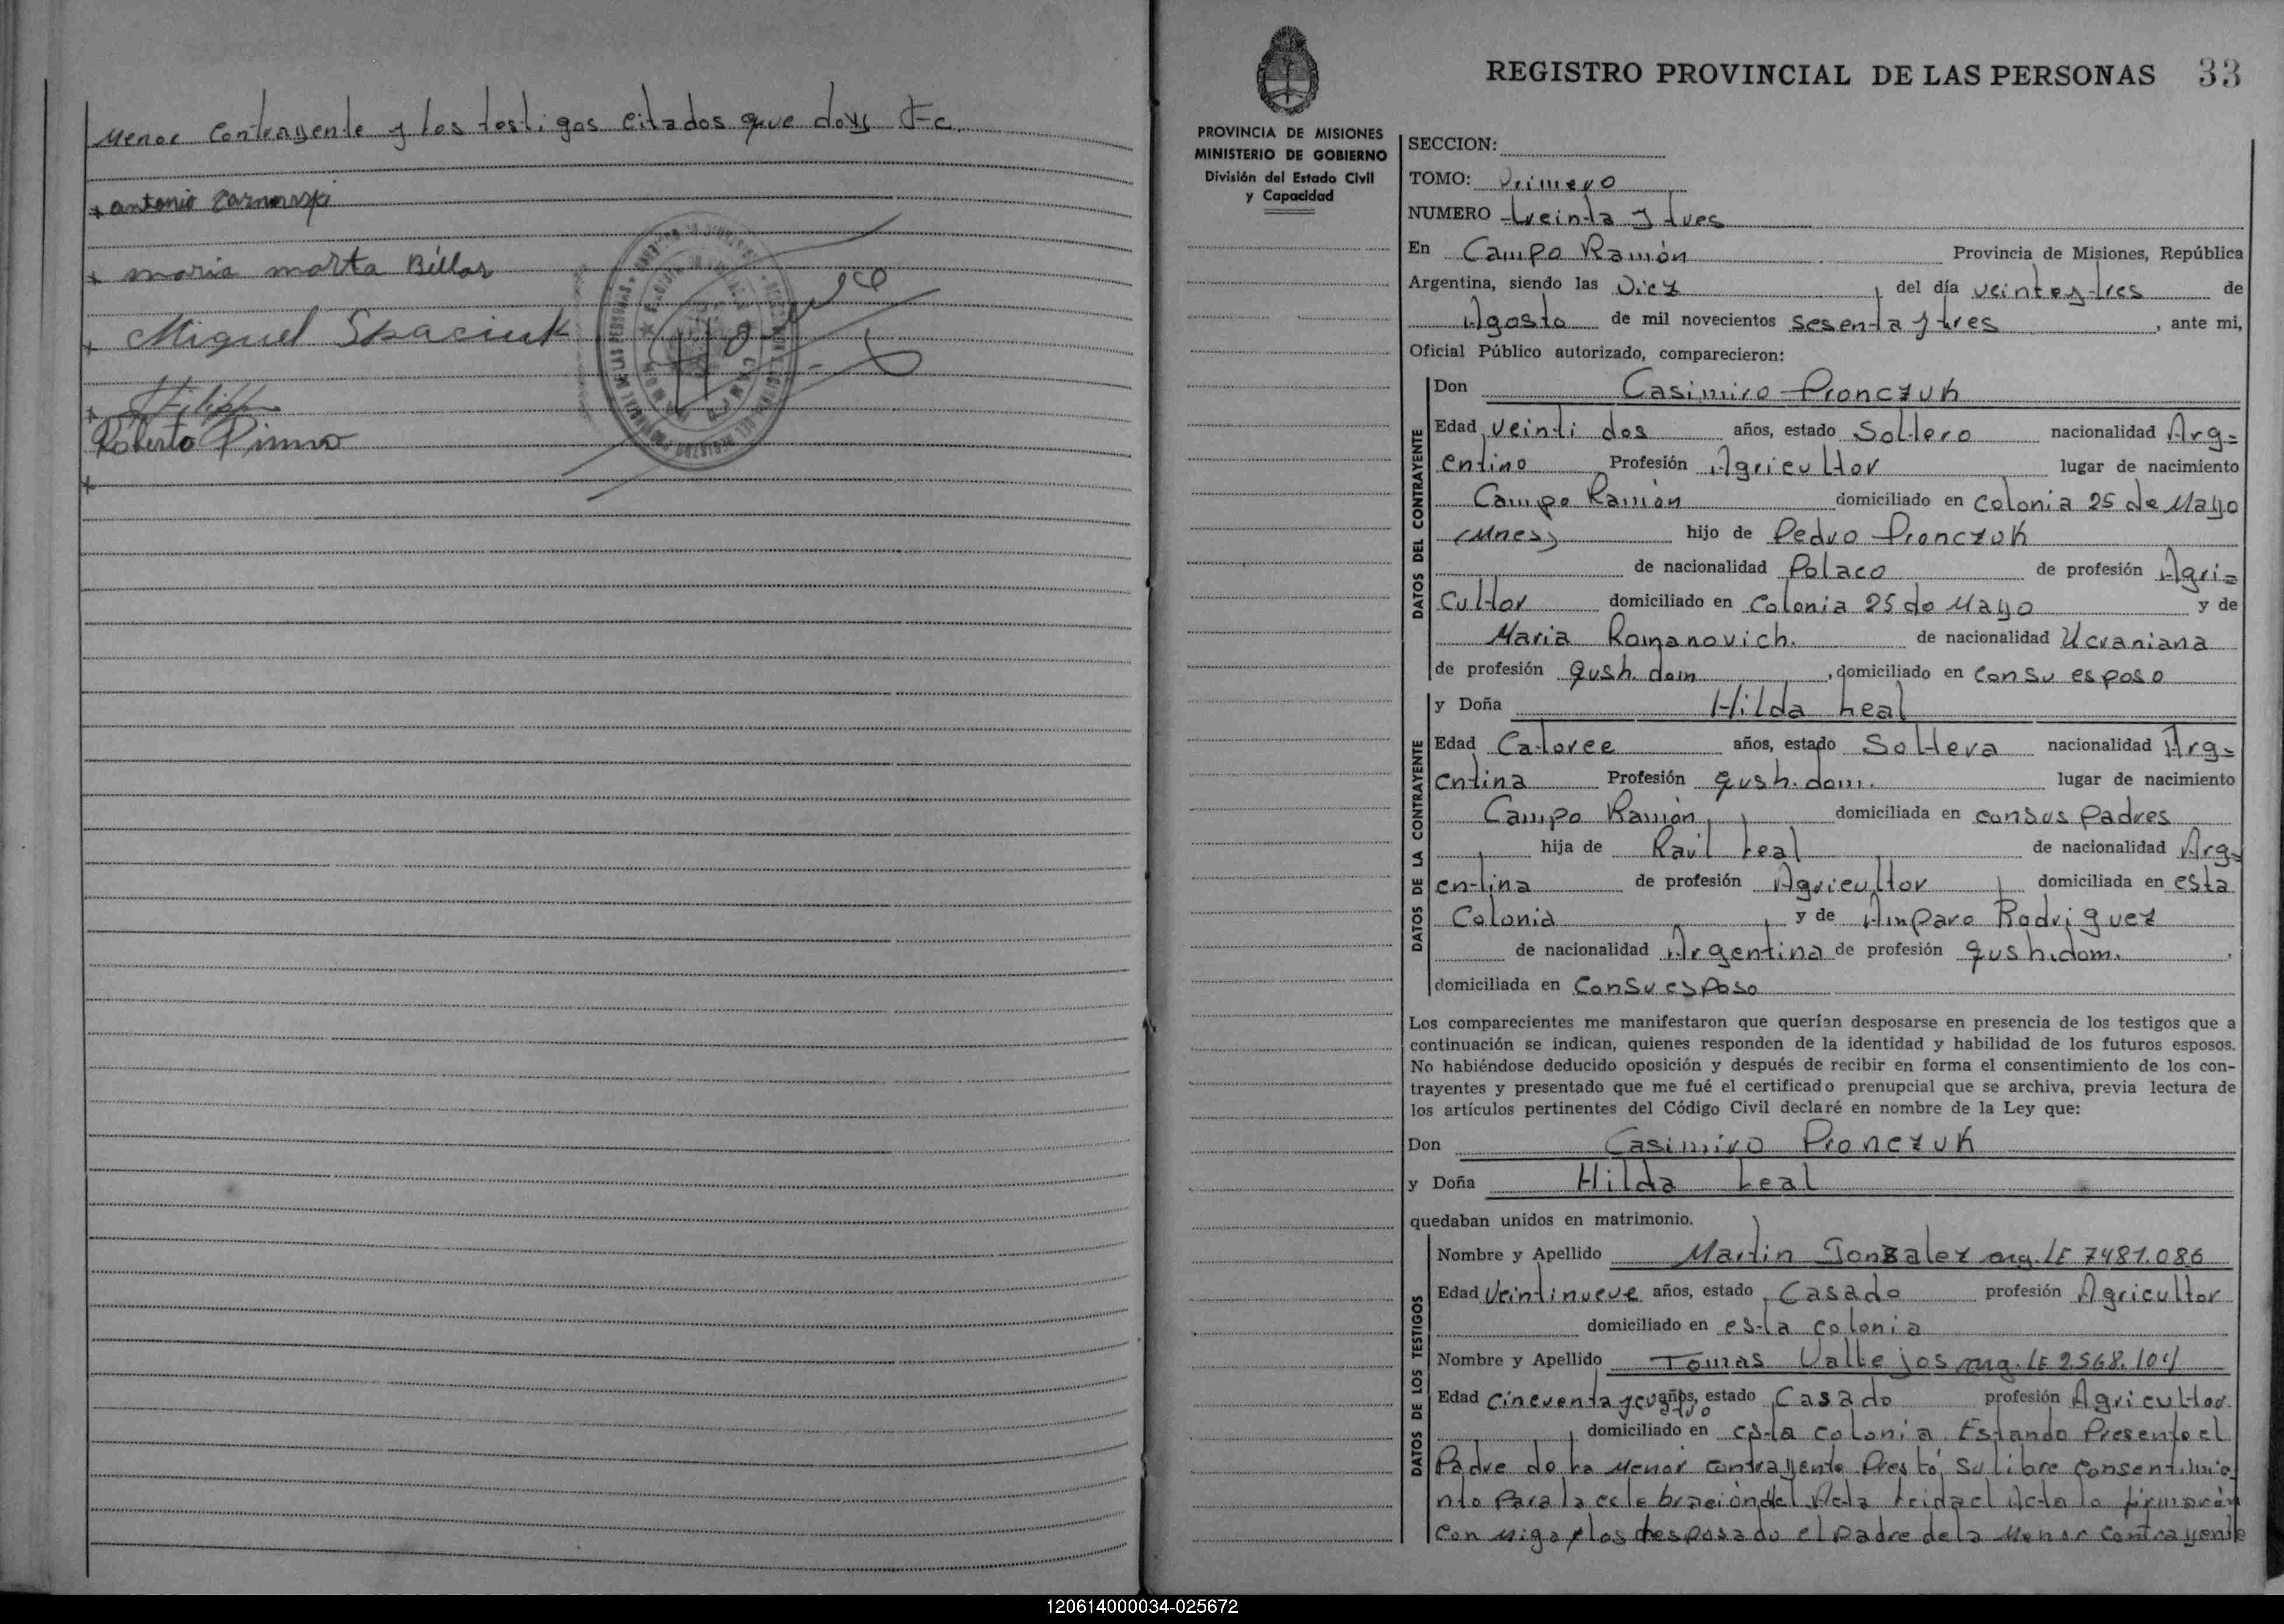 Menor Contrayente y los testigos citados que doy Fe.
+ antonio Zarnorski
+ maria marta Billar
+ Miguel Spaciuk
+ Filipp
Roberto Pinno
+
REGISTRO PROVINCIAL DE LAS PERSONAS 33
PROVINCIA DE MISIONES
MINISTERIO DE GOBIERNO
División del Estado Civil
y Capacidad
SECCION:
TOMO: Primero
NUMERO treinta y tres
En Campo Ramón Provincia de Misiones, República
Argentina, siendo las Diez del día veinte y tres de
Agosto de mil novecientos sesenta y tres, ante mi,
Oficial Público autorizado, comparecieron:
DATOS DEL CONTRAYENTE
Don Casimiro Pronczuk
Edad veinti dos años, estado Soltero nacionalidad Arg=
entino Profesión Agricultor lugar de nacimiento
Campo Ramón domiciliado en colonia 25 de Mayo
(Mnes) hijo de Pedro Pronczuk
de nacionalidad Polaco de profesión Agri=
cultor domiciliado en Colonia 25 de Mayo y de
Maria Romanovich. de nacionalidad Ucraniana
de profesión qush. dom, domiciliado en con su esposo
DATOS DE LA CONTRAYENTE
y Doña Hilda Leal
Edad Catorce años, estado Soltera nacionalidad Arg=
entina Profesión qush. dom. lugar de nacimiento
Campo Ramón domiciliada en con sus Padres
hija de Raúl Leal de nacionalidad Arg=
entina de profesión Agricultor domiciliada en esta
Colonia y de Amparo Rodriguez
de nacionalidad Argentina de profesión qush.dom.,
domiciliada en con su esposo
Los comparecientes me manifestaron que querían desposarse en presencia de los testigos que a
continuación se indican, quienes responden de la identidad y habilidad de los futuros esposos.
No habiéndose deducido oposición y después de recibir en forma el consentimiento de los con-
trayentes y presentado que me fué el certificado prenupcial que se archiva, previa lectura de
los artículos pertinentes del Código Civil declaré en nombre de la Ley que:
Don Casimiro Pronczuk
y Doña Hilda Leal
quedaban unidos en matrimonio.
DATOS DE LOS TESTIGOS
Nombre y Apellido Martin Gonzalez arg. LE 7481.086
Edad Veintinueve años, estado Casado profesión Agricultor
domiciliado en esta colonia
Nombre y Apellido Tomas Vallejos arg. LE 2.568.104
Edad cincuenta y cuatro años, estado Casado profesión Agricultor
domiciliado en esta colonia. Estando Presente el
Padre de la Menor contrayente Prestó su libre consentimie
nto Para la celebración del Acta Leida el Acta la firmarán
con migo los desposado el padre de la Menor contrayente
120614000034-025672